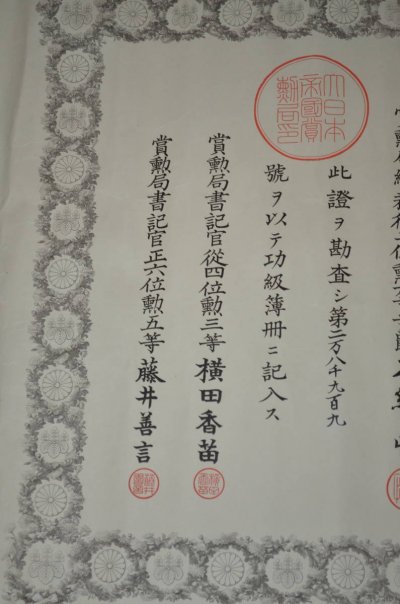 此證ヲ勘査シ第二万八千九百九
號ヲ以テ功級簿冊ニ記入ス
大日本帝國賞勲局印
賞勲局書記官従四位勲三等 横田香苗
賞勲局書記官正六位勲五等 藤井善言